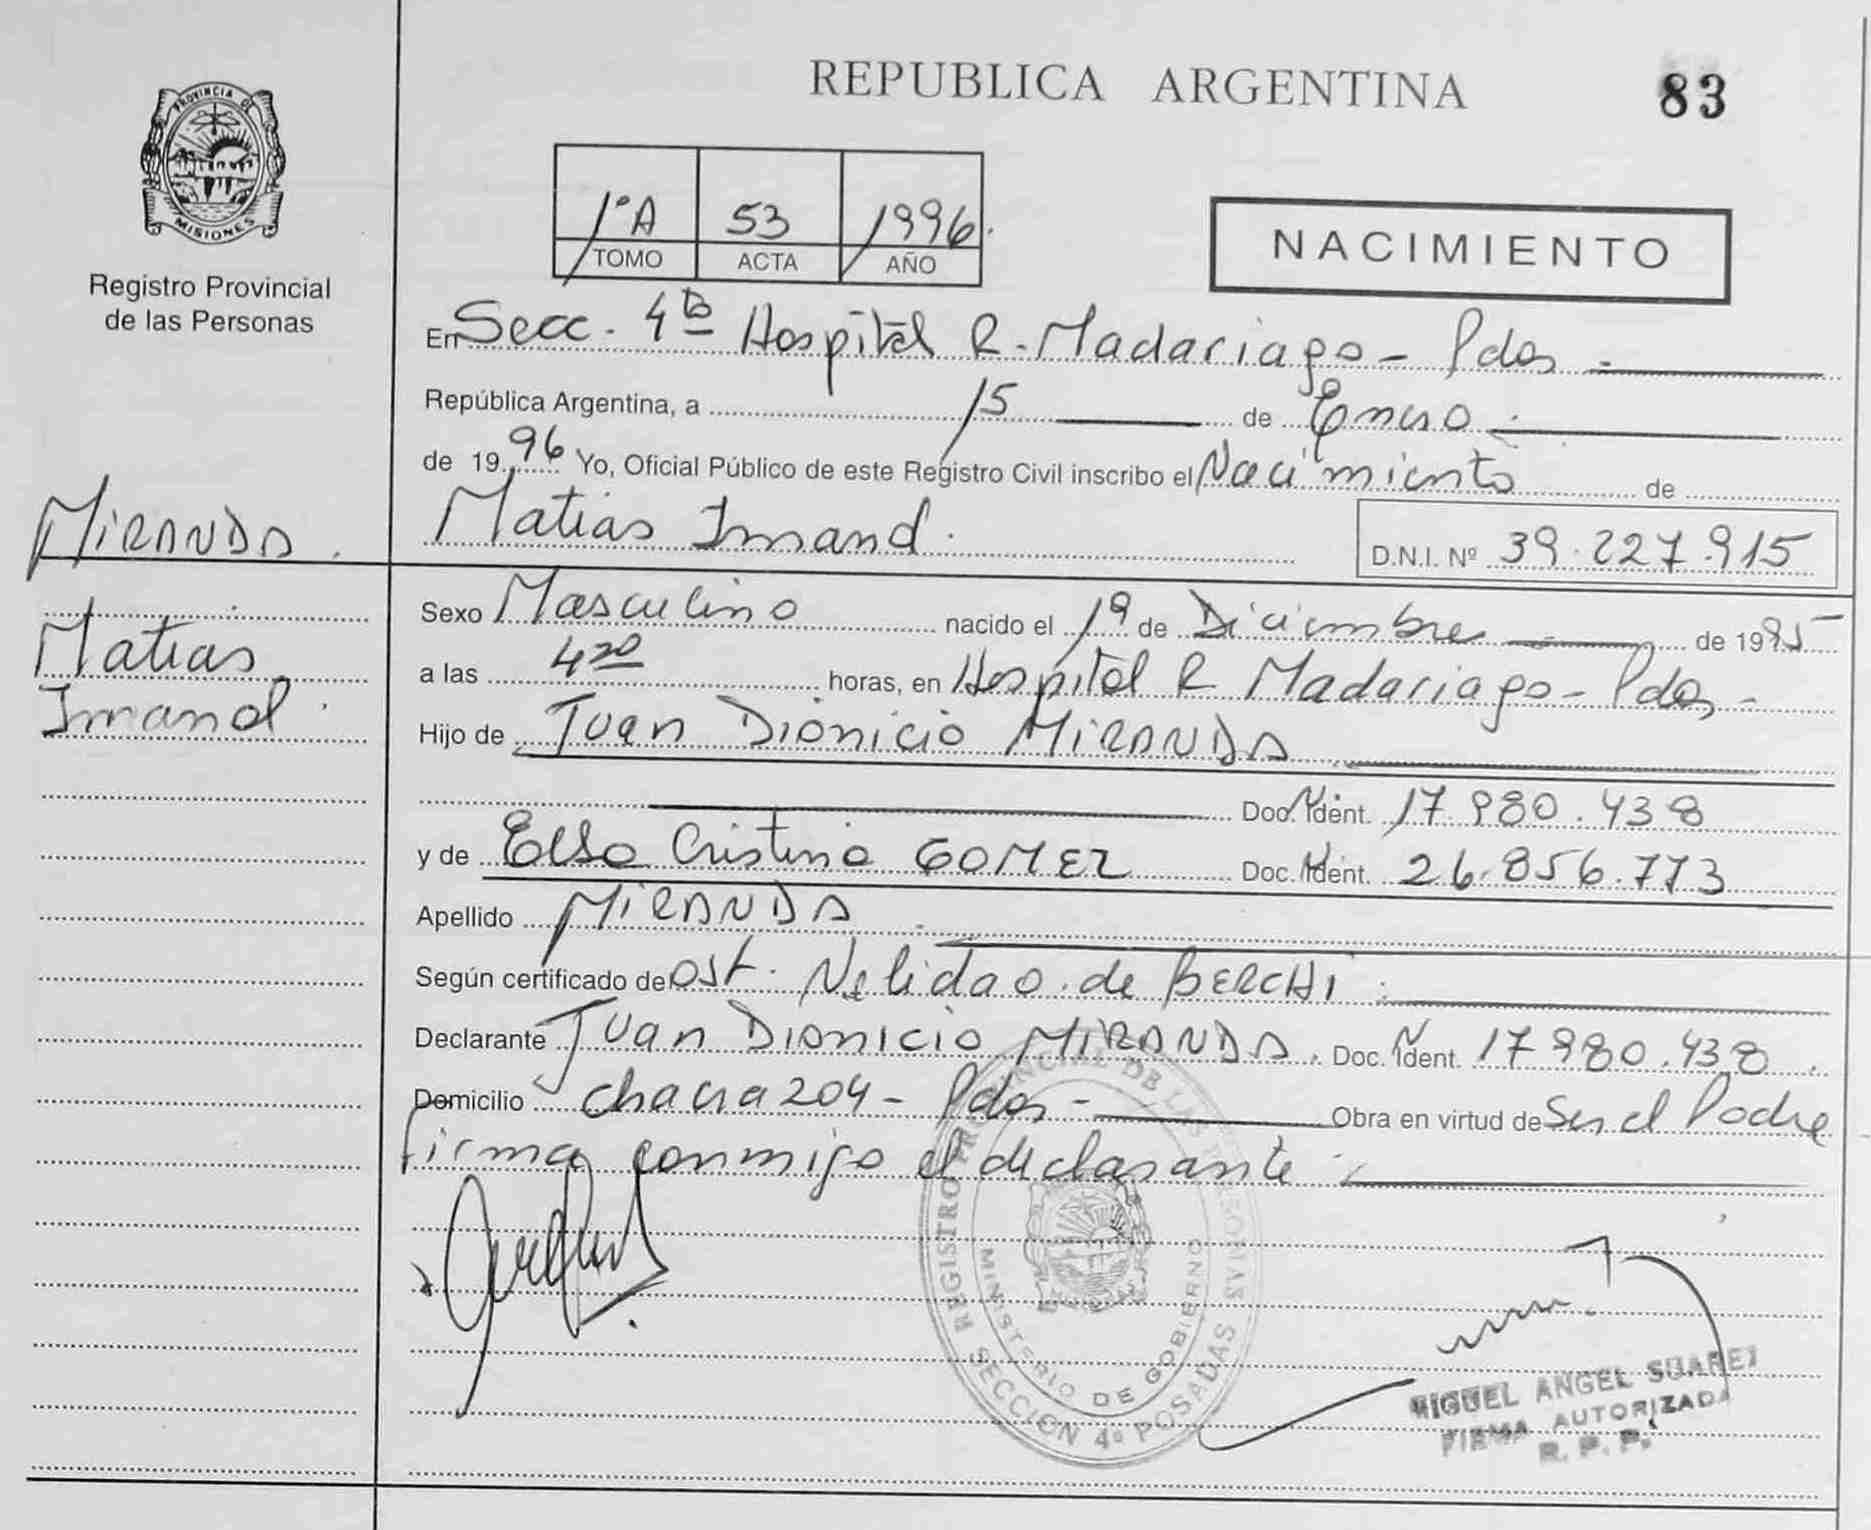 REPUBLICA ARGENTINA
83
PROVINCIA DE
MISIONES
Registro Provincial
de las Personas
1ºA 53 1996
TOMO ACTA AÑO
NACIMIENTO
En Secc. 4ta Hospital R. Madariaga - Pdas
República Argentina, a 15 de Enero
de 1996 Yo, Oficial Público de este Registro Civil inscribo el Nacimiento de
Matias Imanol
D.N.I. Nº 39.227.915
MIRANDA
Matias
Imanol
Sexo Masculino nacido el 19 de Diciembre de 1995
a las 4 20 horas, en Hospital R Madariaga - Pdas -
Hijo de Juan Dionicio MIRANDA
Doc. Ident. 17.980.438
y de Elsa Cristina GOMEZ Doc. Ident. 26.856.773
Apellido MIRANDA
Según certificado de Ost. Nelida O. de BERCHI
Declarante Juan Dionicio MIRANDA. Doc. Ident. 17980.438
Domicilio chacra 204 - Pdas - Obra en virtud de Ser el Padre
firma conmigo el declarante
REGISTRO PROVINCIAL DE LAS PERSONAS
MINISTERIO DE GOBIERNO
SECCION 4ª POSADAS
MIGUEL ANGEL SUAREZ
FIRMA AUTORIZADA
R. P. P.